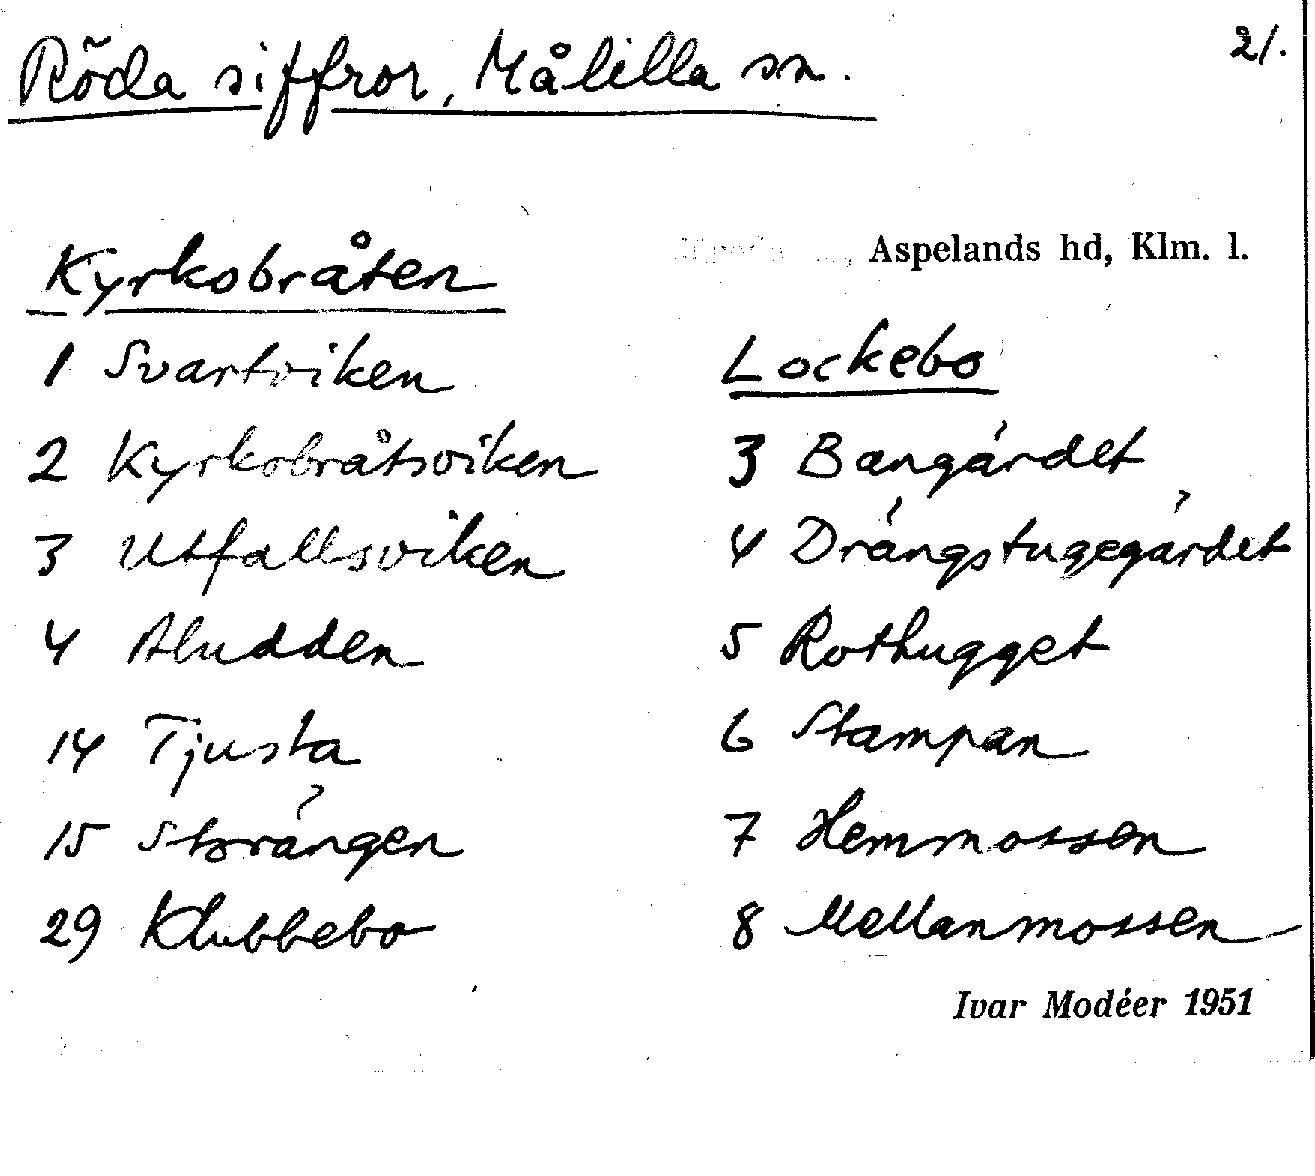 Röda siffror, Målilla sn.
21.
Aspelands hd, Klm. l.
Kyrkobråten
1 Svartviken
2 Kyrkobråtsviken
3 Utfallsviken
4 Aludden
14 Tjusta
15 Storängen
29 Klubbebo
Lockebo
3 Bangärdet
4 Drängstugegärdet
5 Rothugget
6 Stampan
7 Hemmossen
8 Mellanmossen
Ivar Modéer 1951